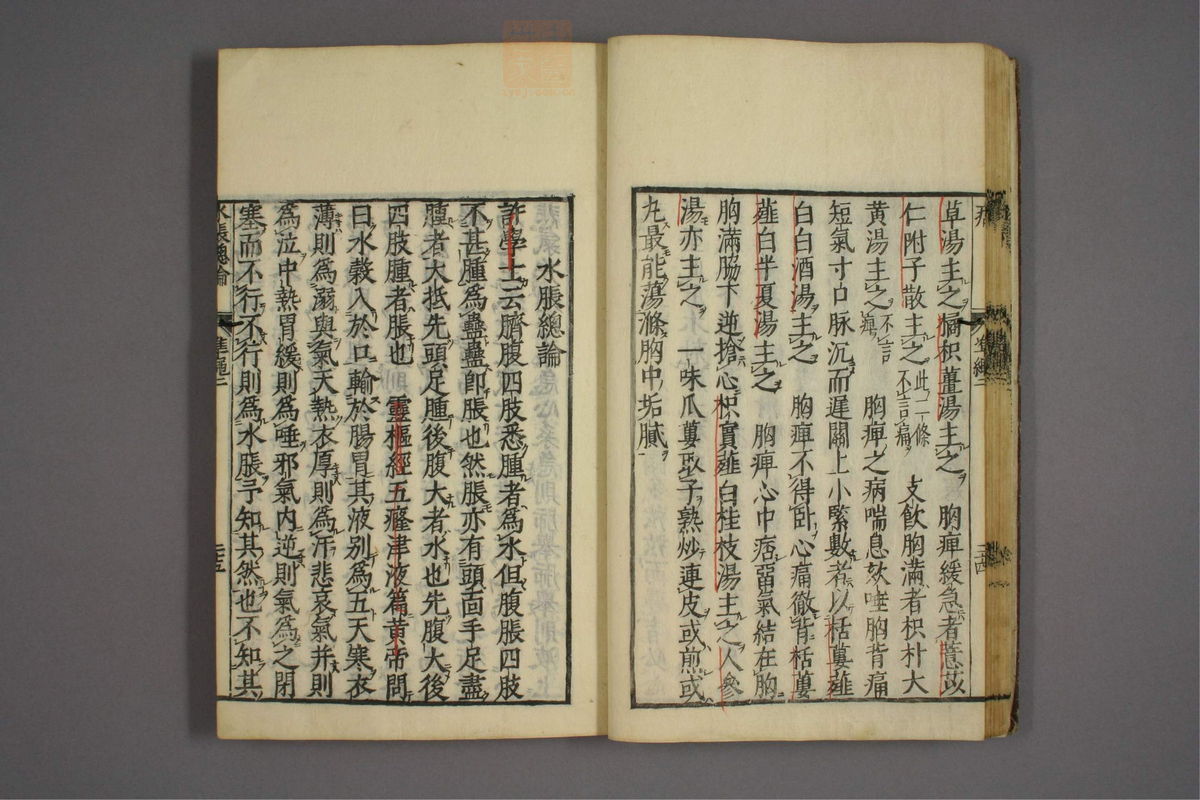 草湯主之 福枳薑湯主之 胸痺緩急者薏苡
仁附子散主之 此二條不言痛 支飲胸滿者枳朴大
黃湯主之 不言痺 胸痺之病喘息欬唾胸背痛
短氣寸口脉沉而遲關上小緊數者以栝蔞薤
白白酒湯主之 胸痺不得卧心痛徹背栝蔞
薤白半夏湯主之 胸痺心中痞留氣結在胸
胸滿脇下逆搶心枳實薤白桂枝湯主之人參
湯亦主之 一味瓜蔞取子熟炒連皮或煎或
丸最能蕩滌胸中垢膩
水脹總論
許學士云臍腹四肢悉腫者為水但腹脹四肢
不甚腫為蠱蠱即脹也然脹亦有頭面手足盡
腫者大抵先頭足腫後腹大者水也先腹大後
四肢腫者脹也 靈樞經五癃津液篇黃帝問
曰水穀入於口輸於腸胃其液别為五天寒衣
薄則為溺與氣天熱衣厚則為汗悲哀氣并則
為泣中熱胃緩則為唾邪氣内逆則氣為之閉
塞而不行不行則為水脹予知其然也不知其
水脹總論 準繩二